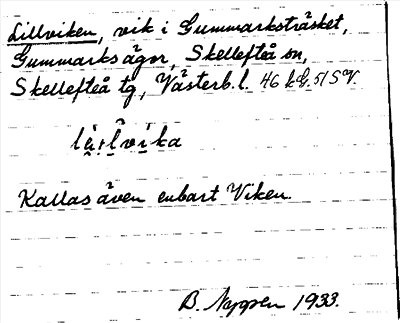 Lillviken, vik i Gummarksträsket,
Gummarks ägor, Skellefteå sn,
Skellefteå tg, Västerb. l. 46 kG. 51 SV.
Kallas även enbart Viken.
B. 1933.